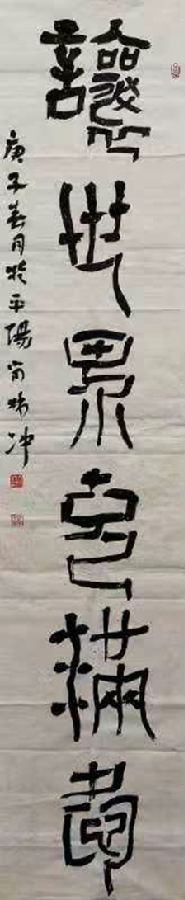 讓世界充滿愛
庚子春月於平陽